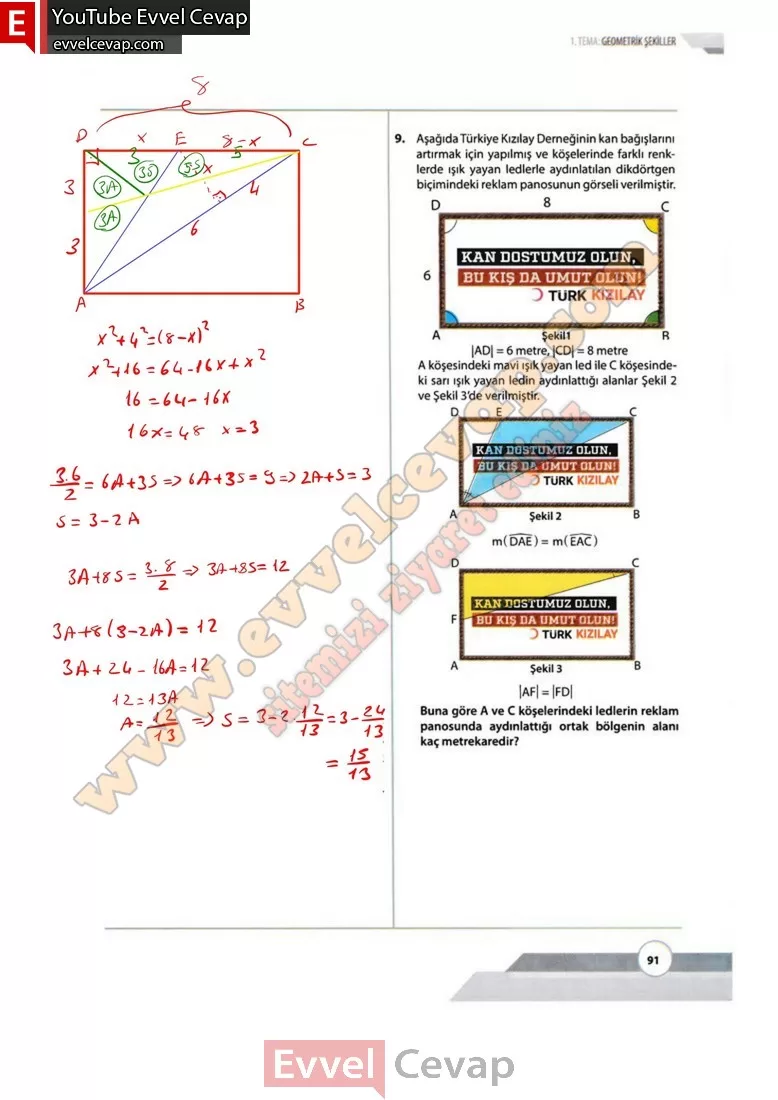 E YouTube Evvel Cevap
evvelcevap.com
1. TEMA: GEOMETRİK ŞEKİLLER
8
D x E 8-x C
3 5
3 3A 3S 5S x
3A 4
3 6
A B
x²+4²=(8-x)²
x²+16=64-16x+x²
16=64-16x
16x=48 x=3
3.6/2=6A+3S=>6A+3S=9=>2A+S=3
S=3-2A
3A+8S=3.8/2=>3A+8S=12
3A+8(3-2A)=12
3A+24-16A=12
12=13A
A=12/13=>S=3-2.12/13=3-24/13
=15/13
9. Aşağıda Türkiye Kızılay Derneğinin kan bağışlarını
artırmak için yapılmış ve köşelerinde farklı renk-
lerde ışık yayan ledlerle aydınlatılan dikdörtgen
biçimindeki reklam panosunun görseli verilmiştir.
D 8 C
KAN DOSTUMUZ OLUN,
6 BU KIŞ DA UMUT OLUN!
TÜRK KIZILAY
A Şekil1 B
|AD| = 6 metre, |CD| = 8 metre
A köşesindeki mavi ışık yayan led ile C köşesinde-
ki sarı ışık yayan ledin aydınlattığı alanlar Şekil 2
ve Şekil 3'de verilmiştir.
D E C
KAN DOSTUMUZ OLUN,
BU KIŞ DA UMUT OLUN!
TÜRK KIZILAY
A Şekil 2 B
m(DAE) = m(EAC)
D C
KAN DOSTUMUZ OLUN,
F BU KIŞ DA UMUT OLUN!
TÜRK KIZILAY
A Şekil 3 B
|AF| = |FD|
Buna göre A ve C köşelerindeki ledlerin reklam
panosunda aydınlattığı ortak bölgenin alanı
kaç metrekaredir?
www.evvelcevap.com
sitemizi ziyaret ediniz
91
Evvel Cevap